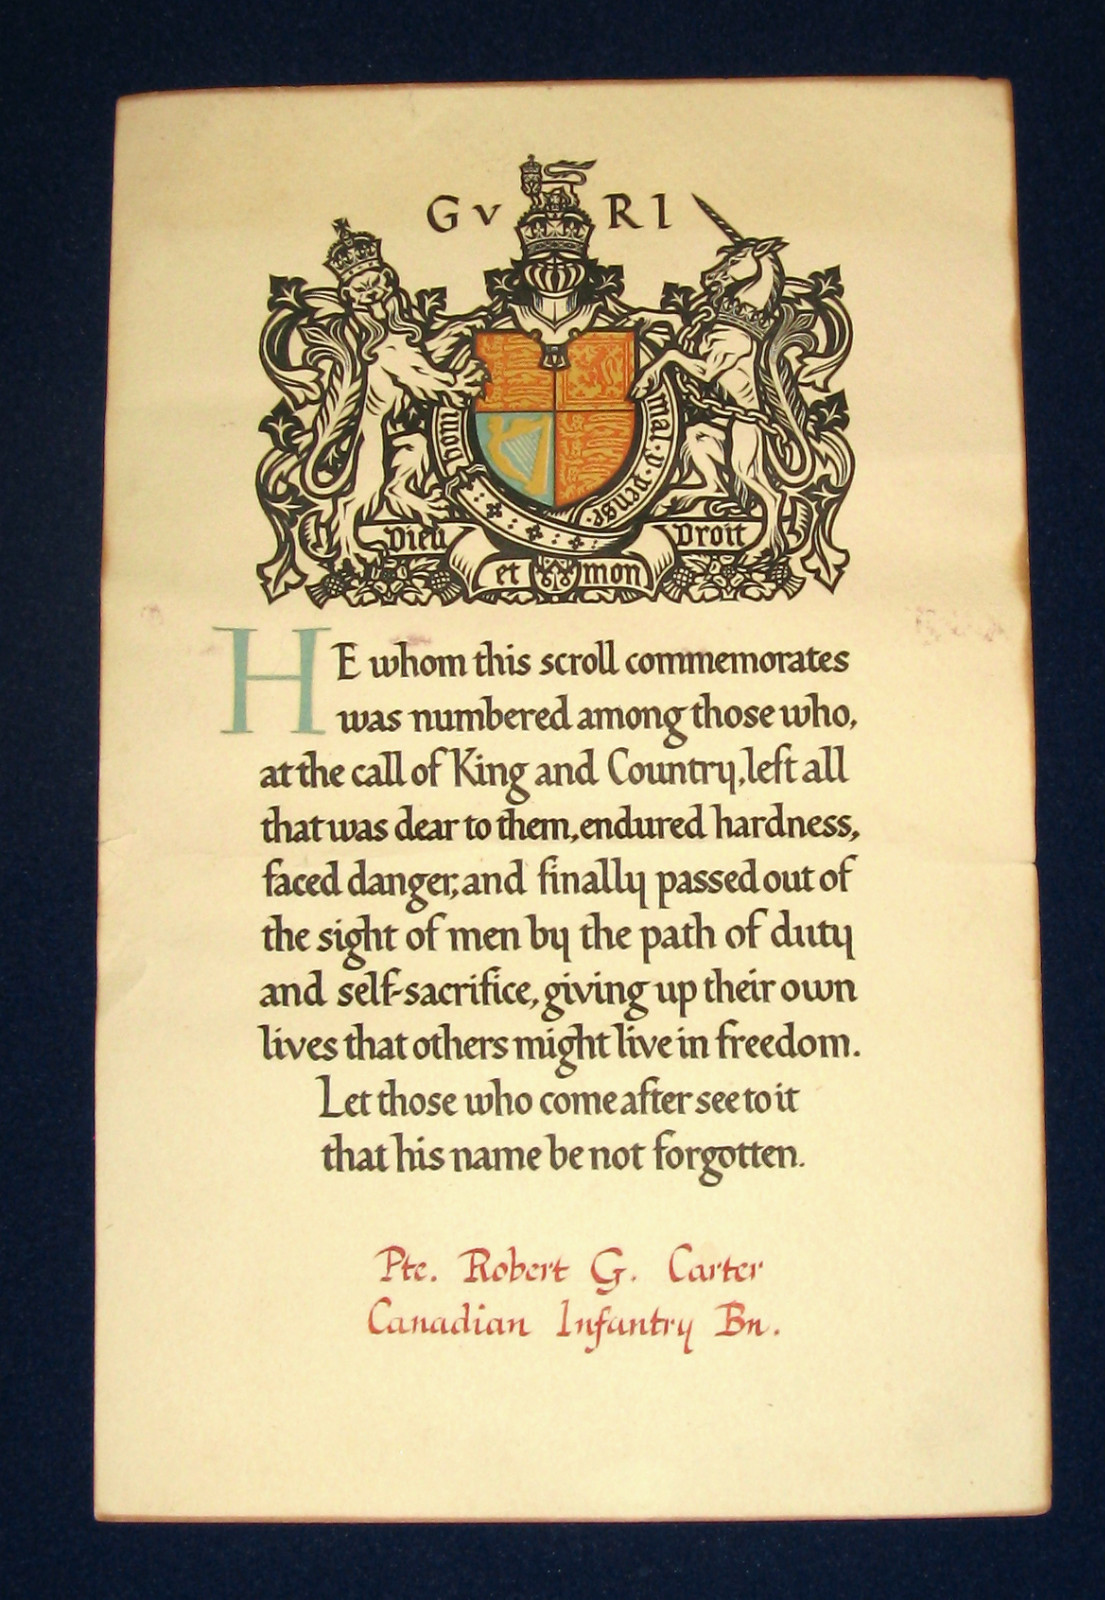 G V R I
Dieu Droit
et mon
HE whom this scroll commemorates
was numbered among those who,
at the call of King and Country, left all
that was dear to them, endured hardness,
faced danger, and finally passed out of
the sight of men by the path of duty
and self-sacrifice, giving up their own
lives that others might live in freedom.
Let those who come after see to it
that his name be not forgotten.
Pte. Robert G. Carter
Canadian Infantry Bn.